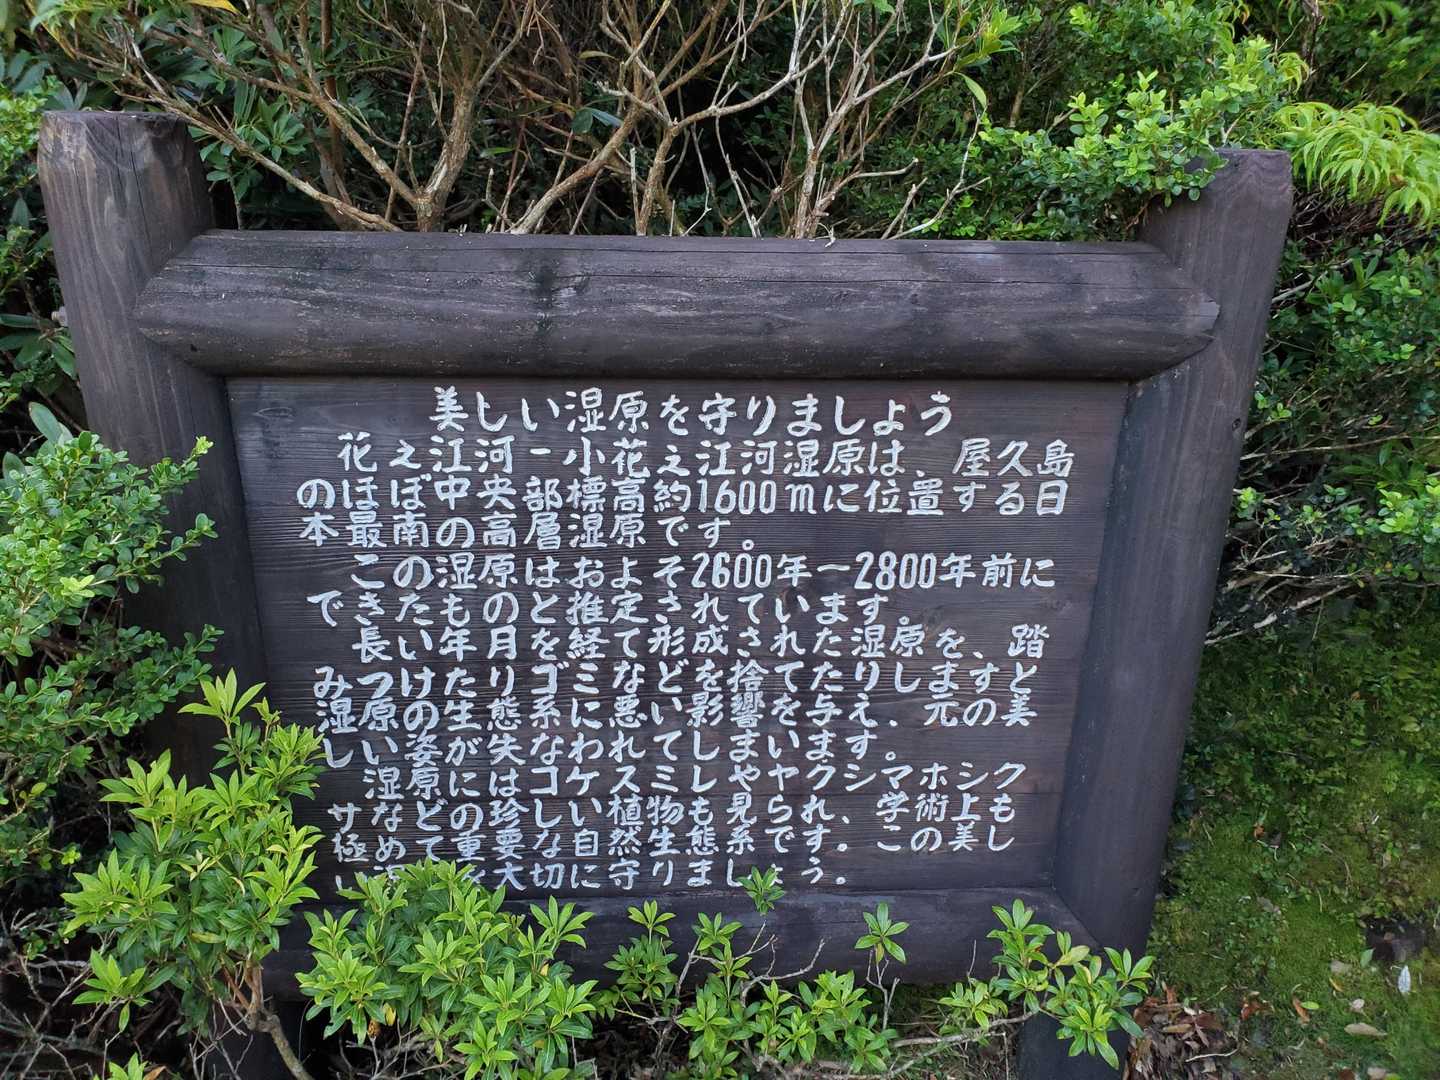 美しい湿原を守りましょう
花之江河-小花之江河湿原は、屋久島
のほぼ中央部標高約1600mに位置する日
本最南の高層湿原です。
この湿原はおよそ2600年ー2800年前に
できたものと推定されています。
長い年月を経て形成された湿原を、踏
みつけたりゴミなどを捨てたりしますと
湿原の生態系に悪い影響を与え、元の美
しい姿が失なわれてしまいます。
湿原にはコケスミレやヤクシマホシク
サなどの珍しい植物も見られ、学術上も
極めて重要な自然生態系です。この美し
い 大切に守りましょう。